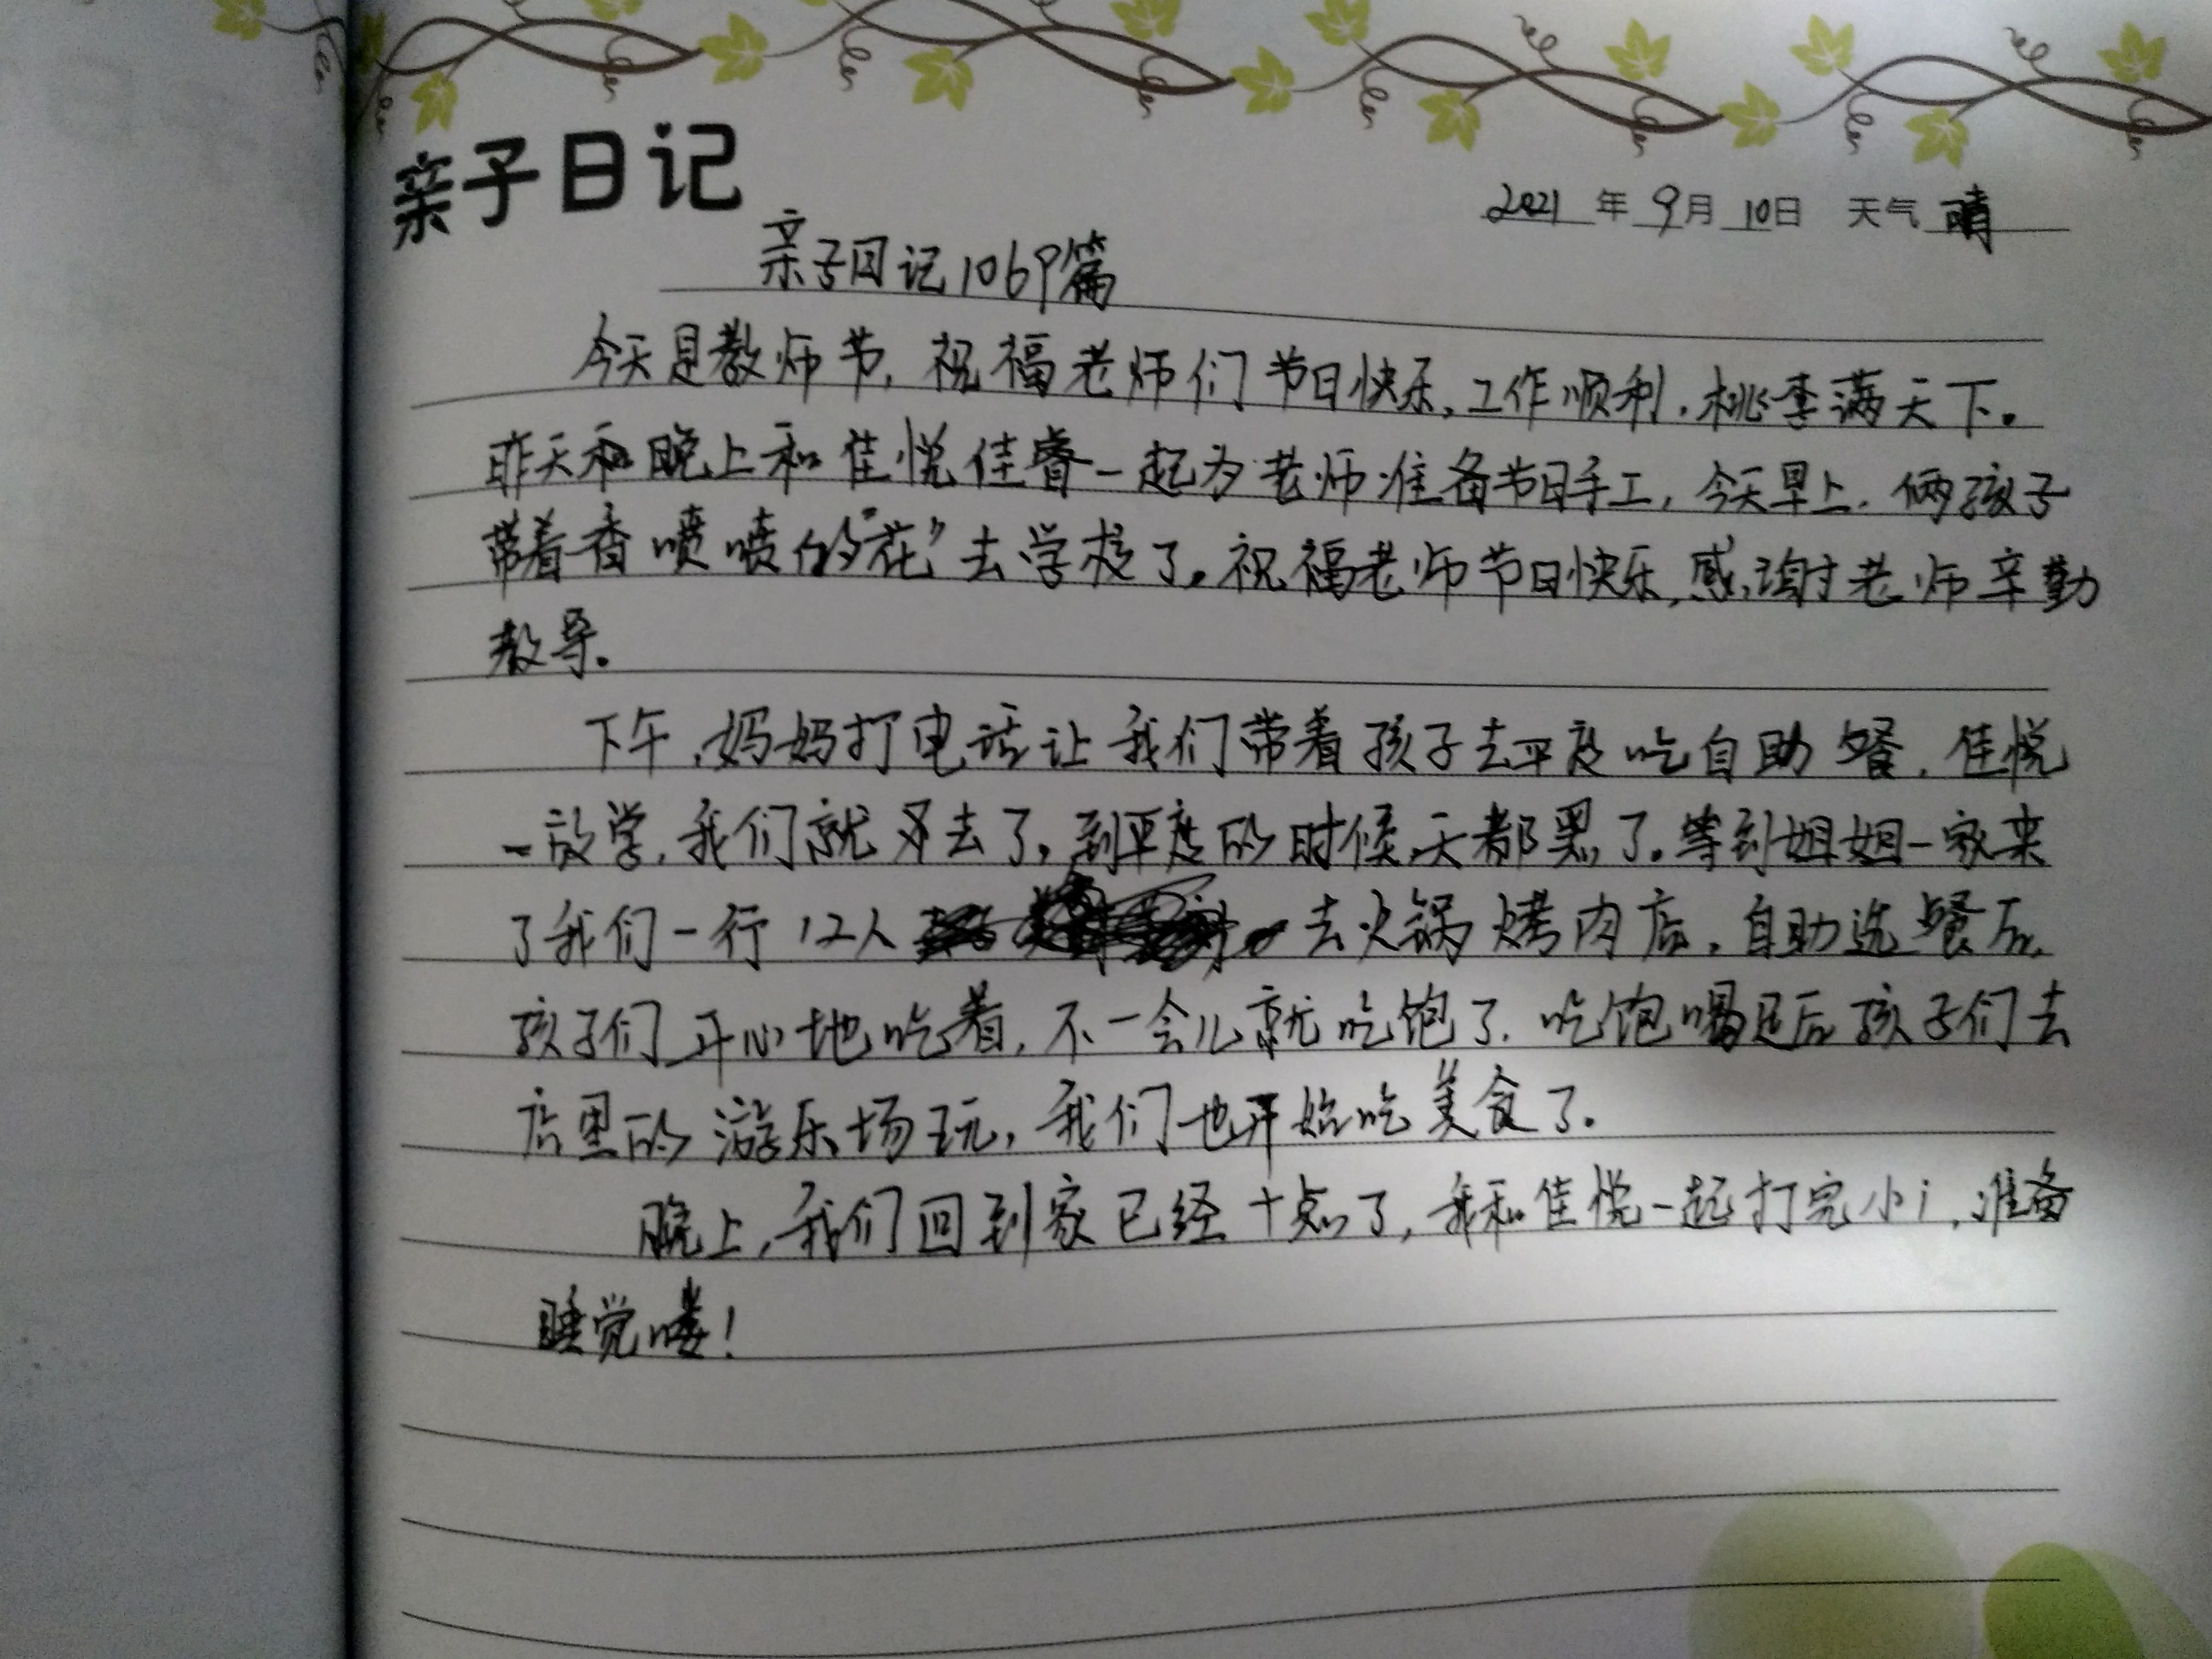 亲子日记
2021年9月10日 天气 晴
亲子日记1069篇
今天是教师节,祝福老师们节日快乐,工作顺利,桃李满天下。
昨天和晚上和佳悦佳睿一起为老师准备节日手工,今天早上,俩孩子
带着香喷喷的“花”去学校了。祝福老师节日快乐,感谢老师辛勤
教导。
下午,妈妈打电话让我们带着孩子去平度吃自助餐,佳悦
一放学,我们就去了。到平度的时候,天都黑了。等到姐姐一家来
了我们一行12人去火锅烤肉店,自助选餐后,
孩子们开心地吃着,不一会儿就吃饱了.吃饱喝足后孩子们去
店里的游乐场玩,我们也开始吃美食了.
晚上,我们回到家已经十点了,我和佳悦一起打完小i,准备
睡觉喽!